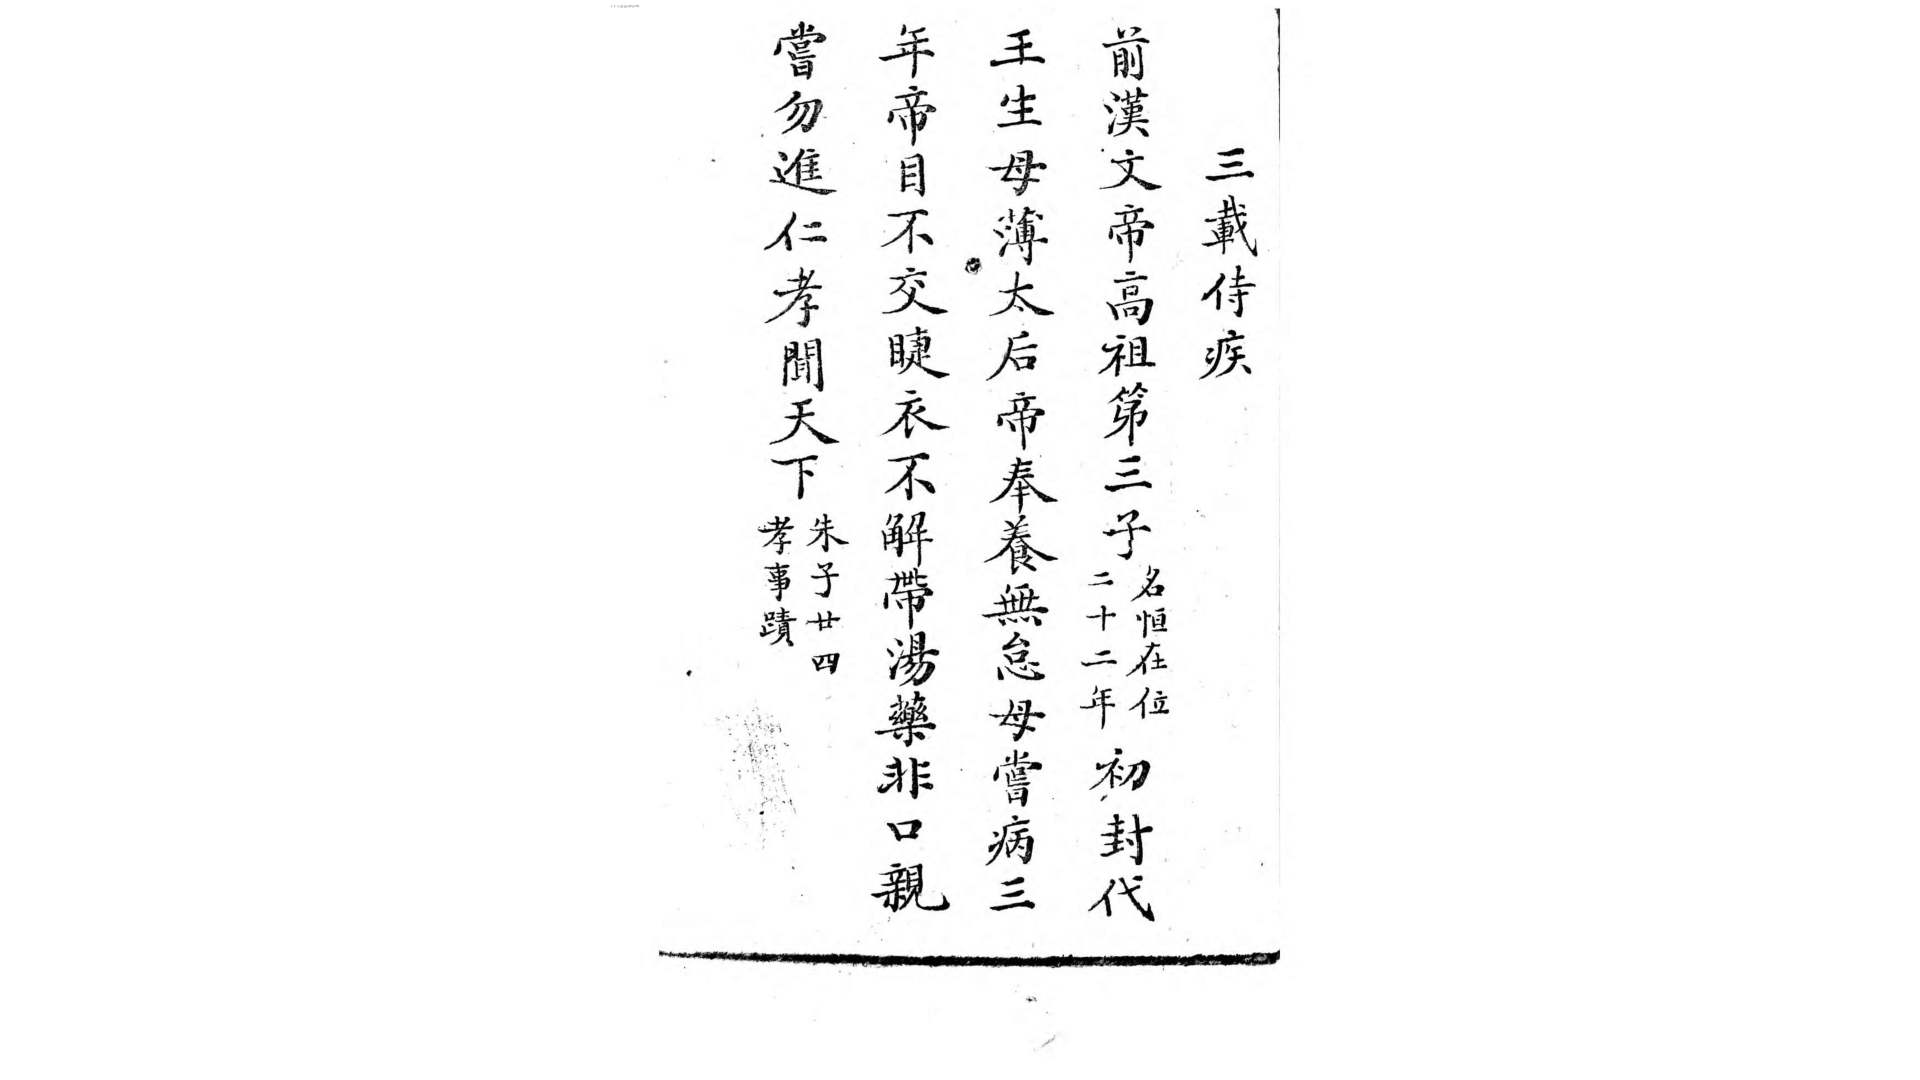 三載侍疾
前漢文帝高祖第三子名恒在位二十二年初封代
王生母薄太后帝奉養無怠母嘗病三
年帝目不交睫衣不解帶湯藥非口親
嘗勿進仁孝聞天下朱子廿四孝事蹟